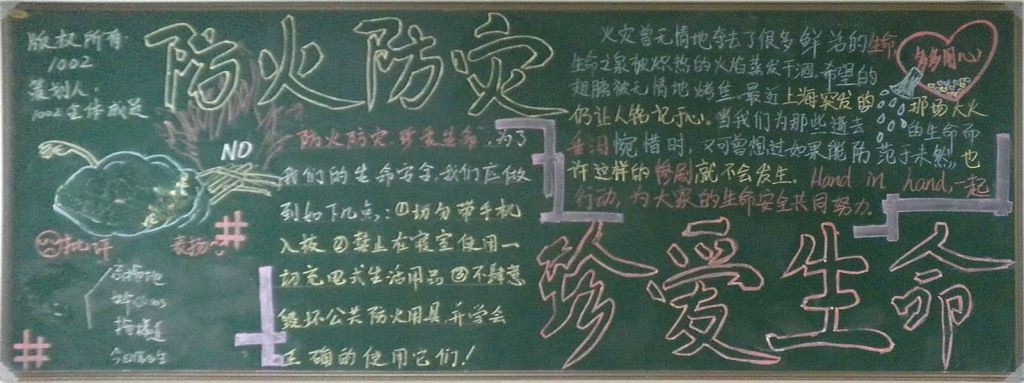 版权所有
1002
策划人:
1002全体成员
防火防灾
NO
防火防灾 珍爱生命,为了
我们的生命安全,我们应做
到如下几点:①切勿带手机
入校 ②禁止在寝室使用一
切充电式生活用品 ③不肆意
毁坏公共防火用具,并学会
正确的使用它们!
批评
表扬
值日生
火灾曾无情地夺去了很多鲜活的生命
生命之泉被炽热的火焰蒸发干涸,希望的
翅膀被无情地烤焦。最近上海突发的 那场大火
仍让人铭记于心。当我们为那些逝去 的生命而
垂泪惋惜时,又可曾想过如果能防 范于未然,也
许这样的惨剧就不会发生。Hand in hand,一起
行动,为大家的生命安全共同努力。
多多关心
珍爱生命